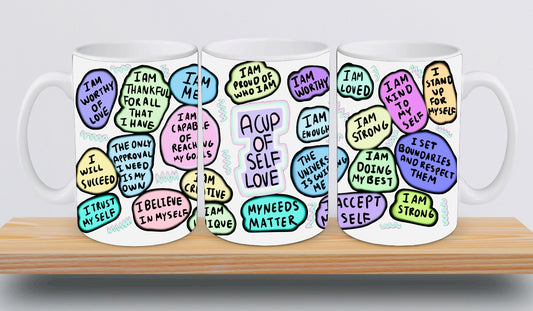 I AM
WORTHY
OF
LOVE
I AM
THANKFUL
FOR ALL
THAT
I HAVE
I AM
ME
I AM
CAPABLE
OF
REACHING
MY GOALS
THE ONLY
APPROVAL
I NEED
IS MY
OWN
I
WILL
SUCCEED
I TRUST
MY SELF
I BELIEVE
IN MYSELF
I AM
CREATIVE
I AM
I AM
PROUD OF
WHO I AM
I AM
WORTHY
A CUP
OF
SELF
LOVE
I AM
ENOUGH
THE
UNIVERSE
IS
ME
MY NEEDS
MATTER
I AM
LOVED
I AM
KIND
TO MY
SELF
I
STAND
UP
FOR
MYSELF
I AM
STRONG
I AM
DOING
MY BEST
I SET
BOUNDARIES
AND RESPECT
THEM
ACCEPT
SELF
I AM
STRONG